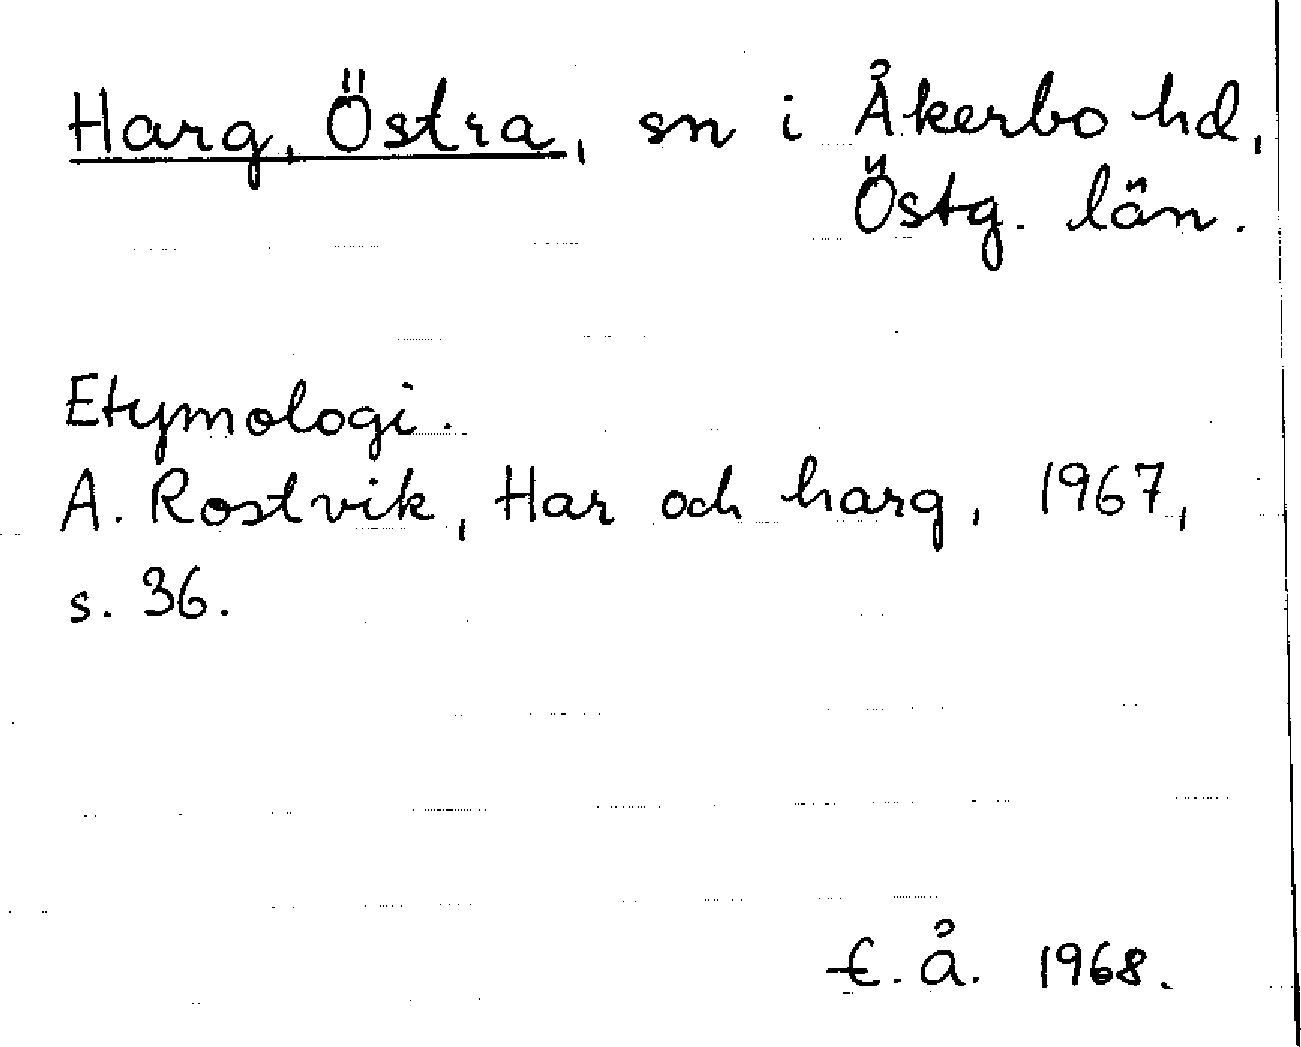 Harg, Östra, sn i Åkerbo hd,
Östg. län.
Etymologi.
A. Rostvik, Har och harg, 1967,
s. 36.
E. Å. 1968.